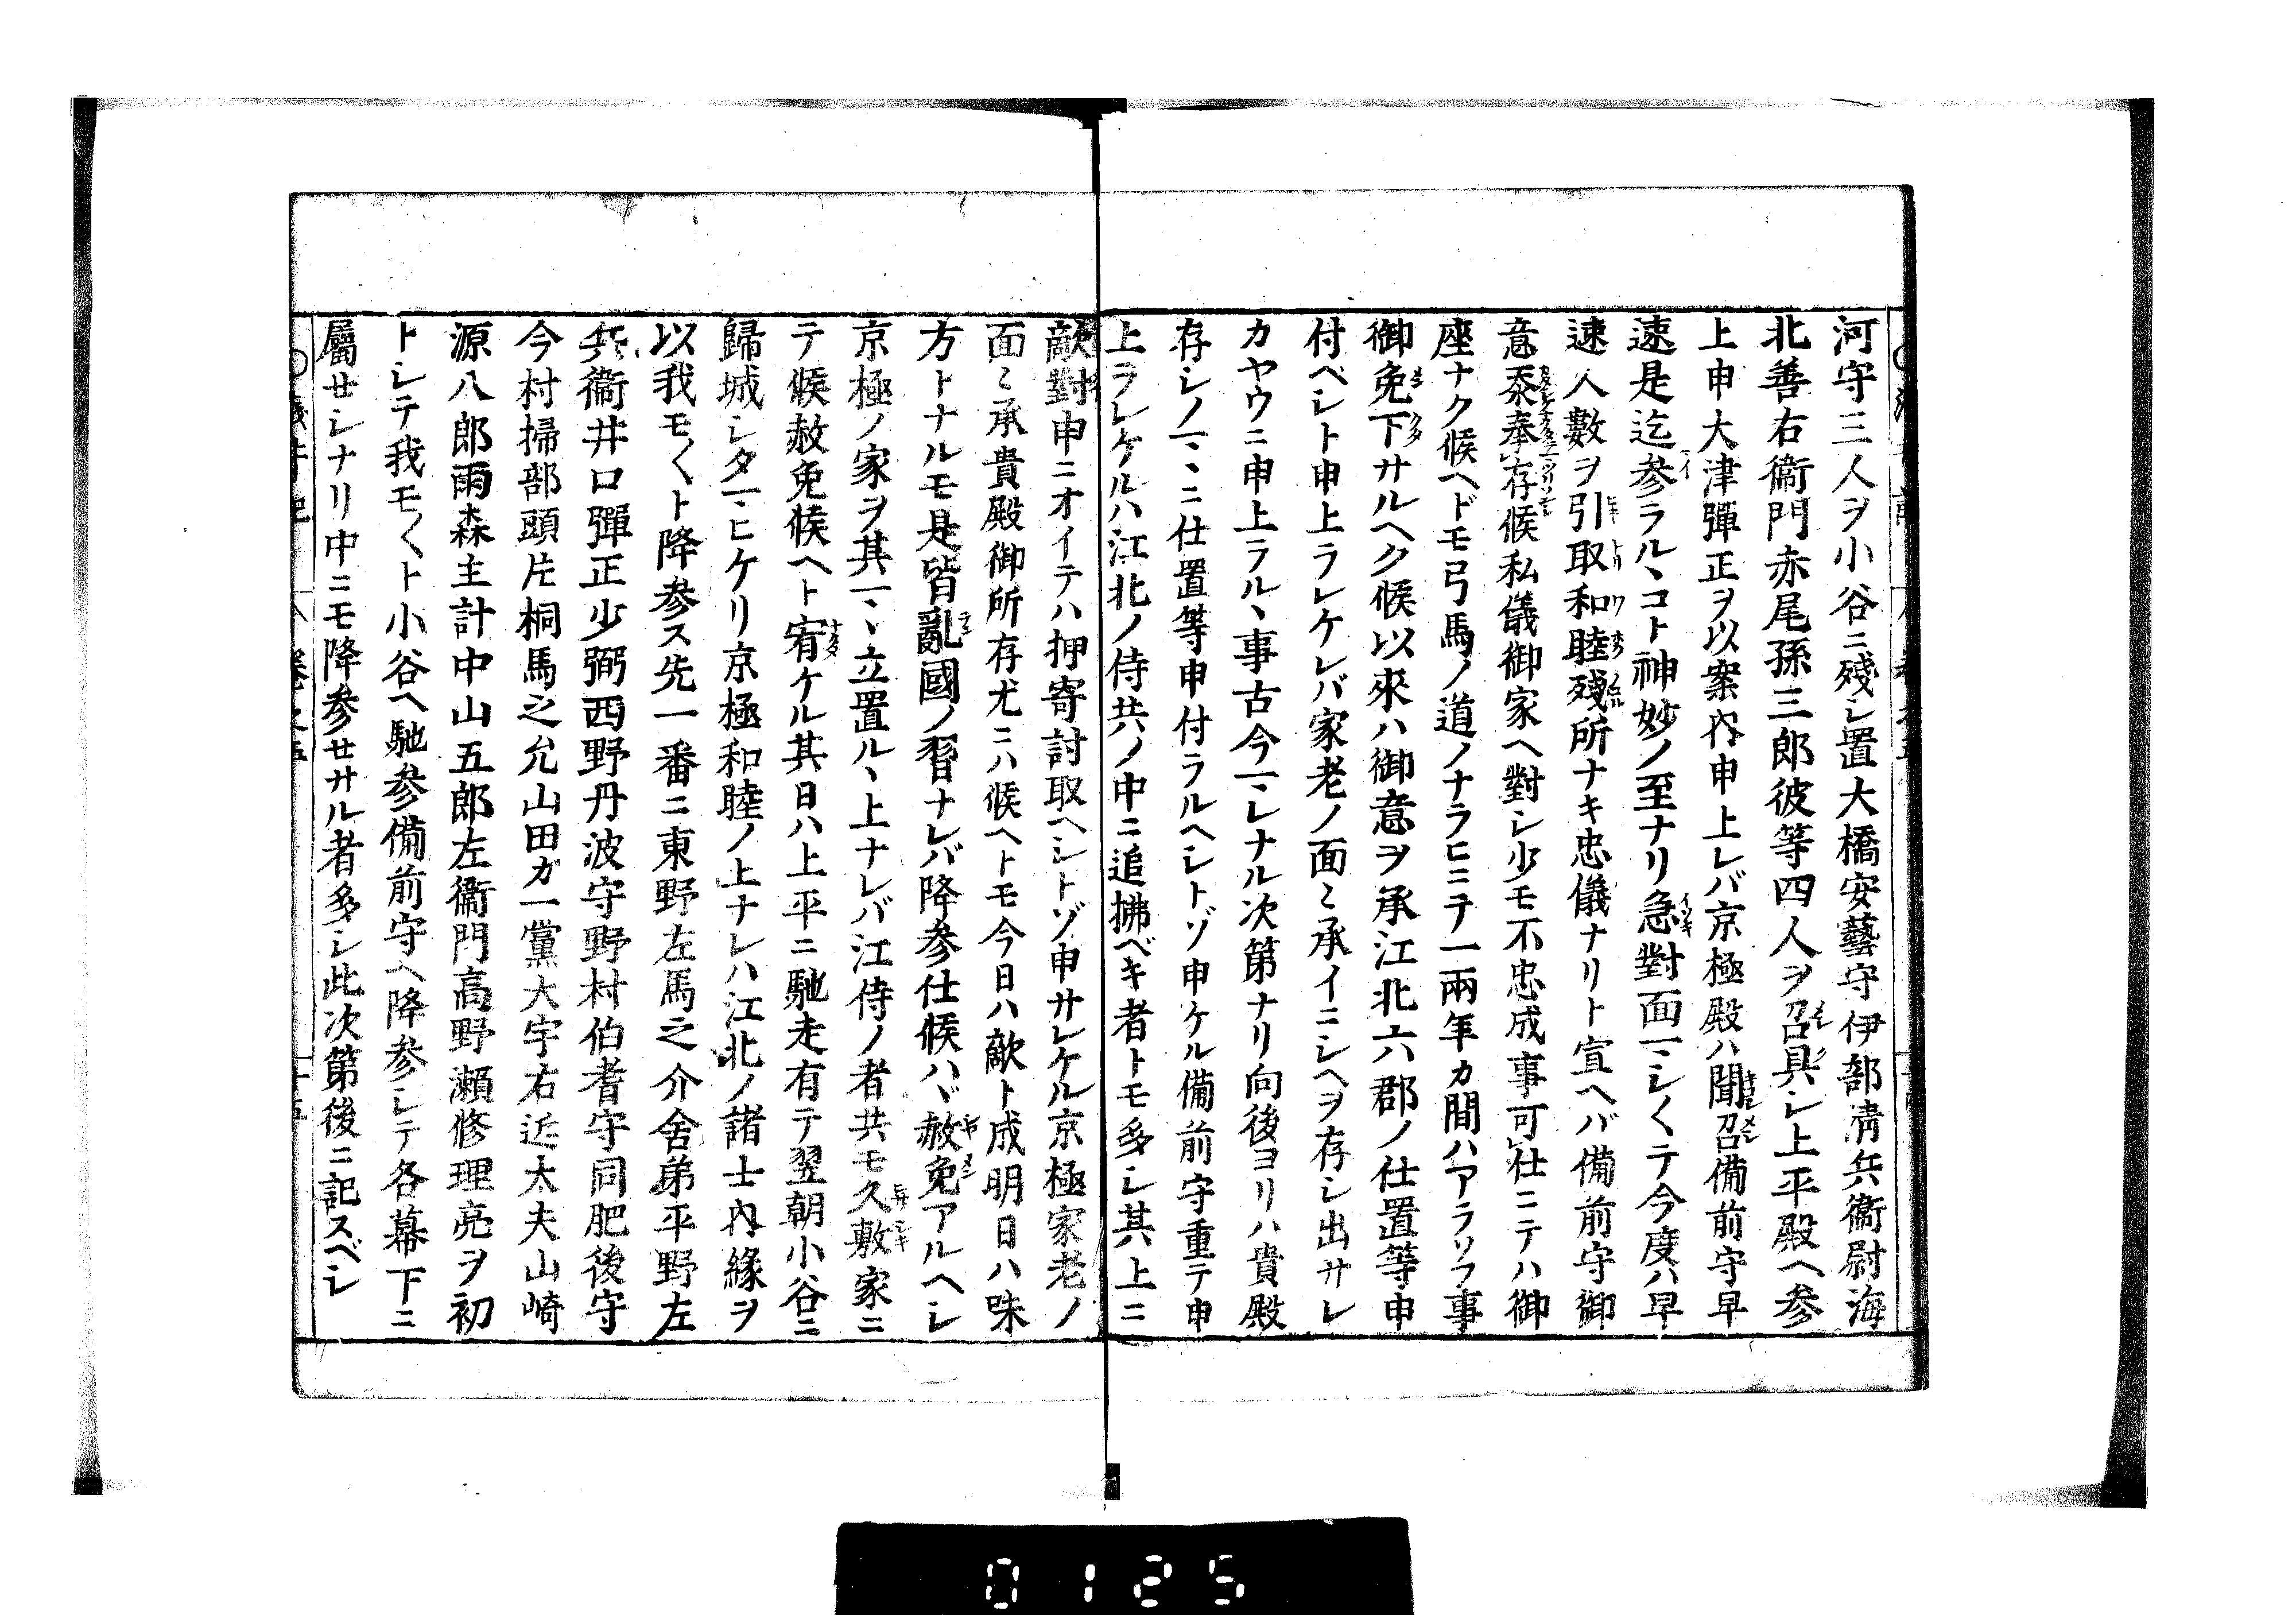 河守三人ヲ小谷ニ殘シ置大橋安藝守伊部淸兵衞尉海
北善右衞門赤尾孫三郎彼等四人ヲ召具シ上平殿ヘ參
上申大津彈正ヲ以案內申上レバ京極殿ハ聞召備前守早
速是迄參ラルヽコト神妙ノ至ナリ急對面一ミシ〱テ今度ハ早
速人數ヲ引取和睦殘所ナキ忠儀ナリト宣ヘバ備前守御
意忝奉存候私儀御家ヘ對シ少モ不忠成事可仕ニテハ御
座ナク候ヘドモ弓馬ノ道ノナラヒニテ一兩年カ間ハアラソフ事
御免下サルヘク候以來ハ御意ヲ承江北六郡ノ仕置等申
付ベシト申上ラレケレバ家老ノ面〻承イニシヘヲ存シ出サレ
カヤウニ申上ラルヽ事古今一ミレナル次第ナリ向後ヨリハ貴殿
存シノ一ヽニ仕置等申付ラルヘシトゾ申ケル備前守重テ申
上ラレケルハ江北ノ侍共ノ中ニ追拂ベキ者トモ多シ其上ニ
敵對申ニオイテハ押寄討取ヘシトゾ申サレケル京極家老ノ
面〻承貴殿御所存尤ニハ候ヘトモ今日ハ敵ト成明日ハ味
方トナルモ是皆亂國ノ習ナレバ降參仕候ハヾ赦免アルヘシ
京極ノ家ヲ其一ヽ立置ルヽ上ナレバ江侍ノ者共モ久敷家ニ
テ候赦免候ヘト宥ケル其日ハ上平ニ馳走有テ翌朝小谷ニ
歸城シタ一ヒケリ京極和睦ノ上ナレハ江北ノ諸士內緣ヲ
以我モ〱ト降參ス先一番ニ東野左馬之介舍弟平野左
兵衞井口彈正少弼西野丹波守野村伯耆守同肥後守
今村掃部頭片桐馬之允山田ガ一黨大宇右近太夫山崎
源八郎雨森主計中山五郎左衞門高野瀨修理亮ヲ初
トシテ我モ〱ト小谷ヘ馳參備前守ヘ降參シテ各幕下ニ
屬セシナリ中ニモ降參セサル者多シ此次第後ニ記スベシ
0125